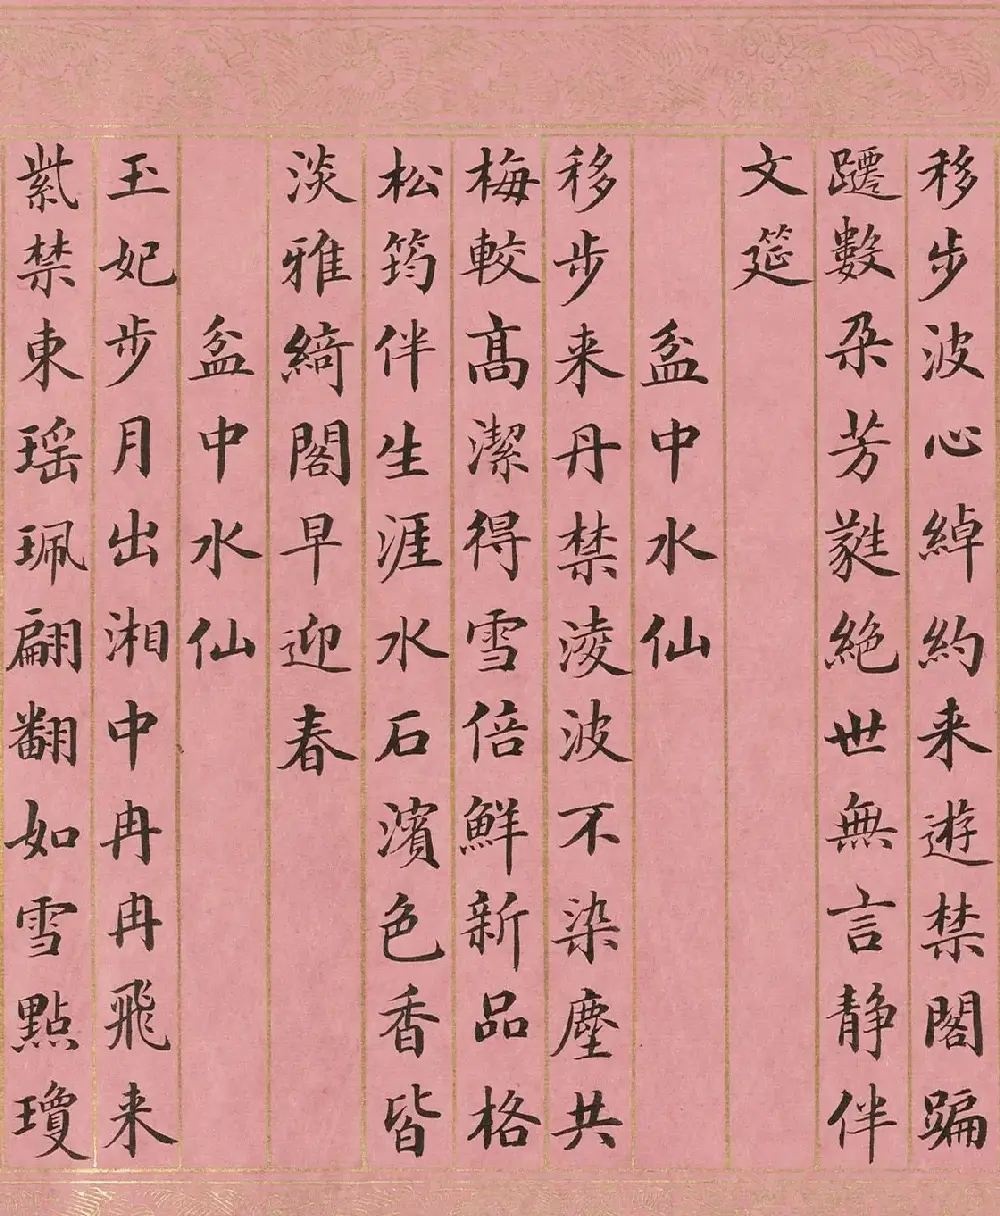 移步波心綽約来遊禁閣蹁
躚數朵芳蕤絶世無言静伴
文筵
盆中水仙
移步来丹禁淩波不染塵共
梅較髙潔得雪倍鮮新品格
松筠伴生涯水石濱色香皆
淡雅綺閣早迎春
盆中水仙
玉妃步月出湘中冉冉飛来
紫禁東瑶珮翩翻如雪點瓊